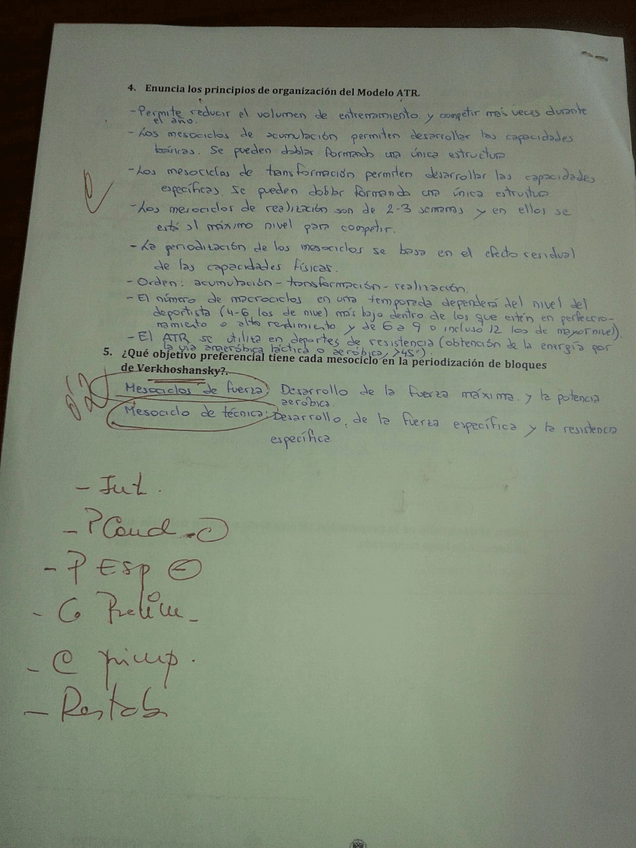 4. Enuncia los principios de organización del Modelo ATR.
- Permite reducir el volumen de entrenamiento y competir más veces durante
el año.
- Los mesociclos de acumulación permiten desarrollar las capacidades
básicas. Se pueden doblar formando una única estructura
- Los mesociclos de transformación permiten desarrollar las capacidades
específicas. Se pueden doblar formando una única estructura.
- Los mesociclos de realización son de 2-3 semanas y en ellos se
está al máximo nivel para competir.
- La periodización de los mesociclos se basa en el efecto residual
de las capacidades físicas.
- Orden: acumulación - transformación - realización
- El número de macrociclos en una temporada dependerá del nivel del
deportista (4-6 los de nivel más bajo dentro de los que estén en perfeccio-
namiento o alto rendimiento y de 6 a 9 o incluso 12 los de mayor nivel).
- El ATR se utiliza en deportes de resistencia (obtención de la energía por
la vía anaeróbica láctica o aeróbica, >45")
5. ¿Qué objetivo preferencial tiene cada mesociclo en la periodización de bloques
de Verkhoshansky?.
Mesociclos de fuerza: Desarrollo de la fuerza máxima y la potencia
aeróbica
Mesociclo de técnica: Desarrollo de la fuerza específica y la resistencia
específica
- Int.
- P Cond. C
- P Esp
- C Prelim.
- C princp.
- Restab